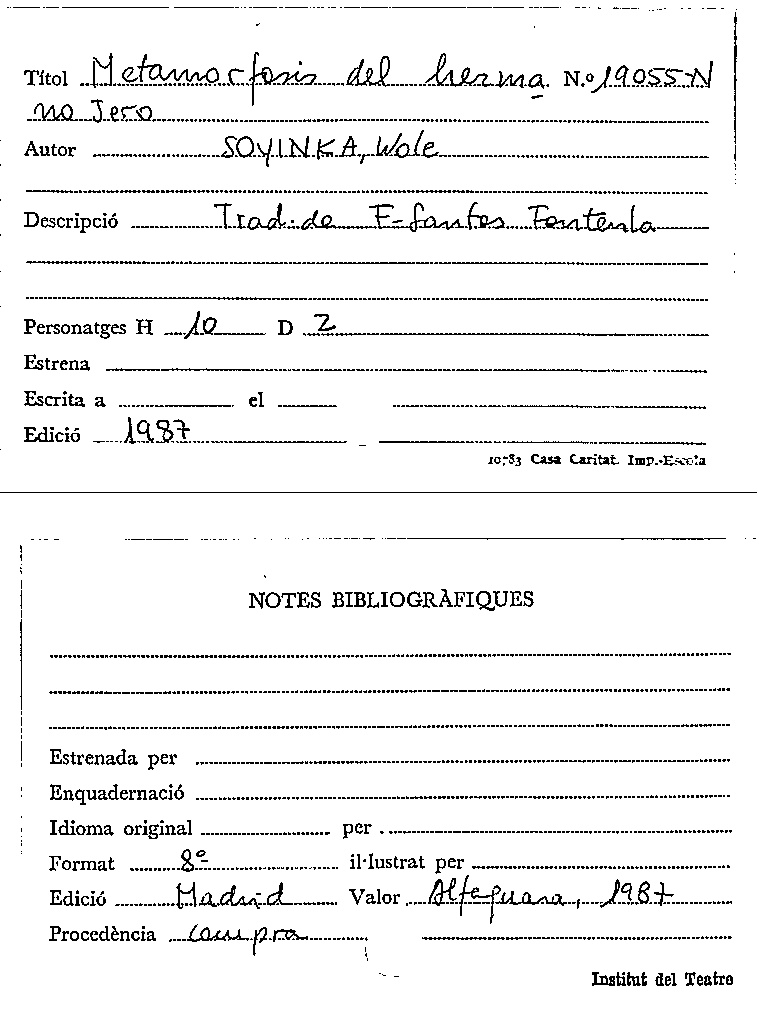 Títol Metamorfosis del herma N.º 19055-N
no Jero
Autor SOYINKA, Wole
Descripció Trad. de F. fantes Fontenla
Personatges H 10 D 2
Estrena
Escrita a el
Edició 1987
10783 Casa Caritat. Imp.-Escola
NOTES BIBLIOGRÀFIQUES
Estrenada per
Enquadernació
Idioma original per
Format 8º il·lustrat per
Edició Madrid Valor Alfaguara, 1987
Procedència compra
Institut del Teatre